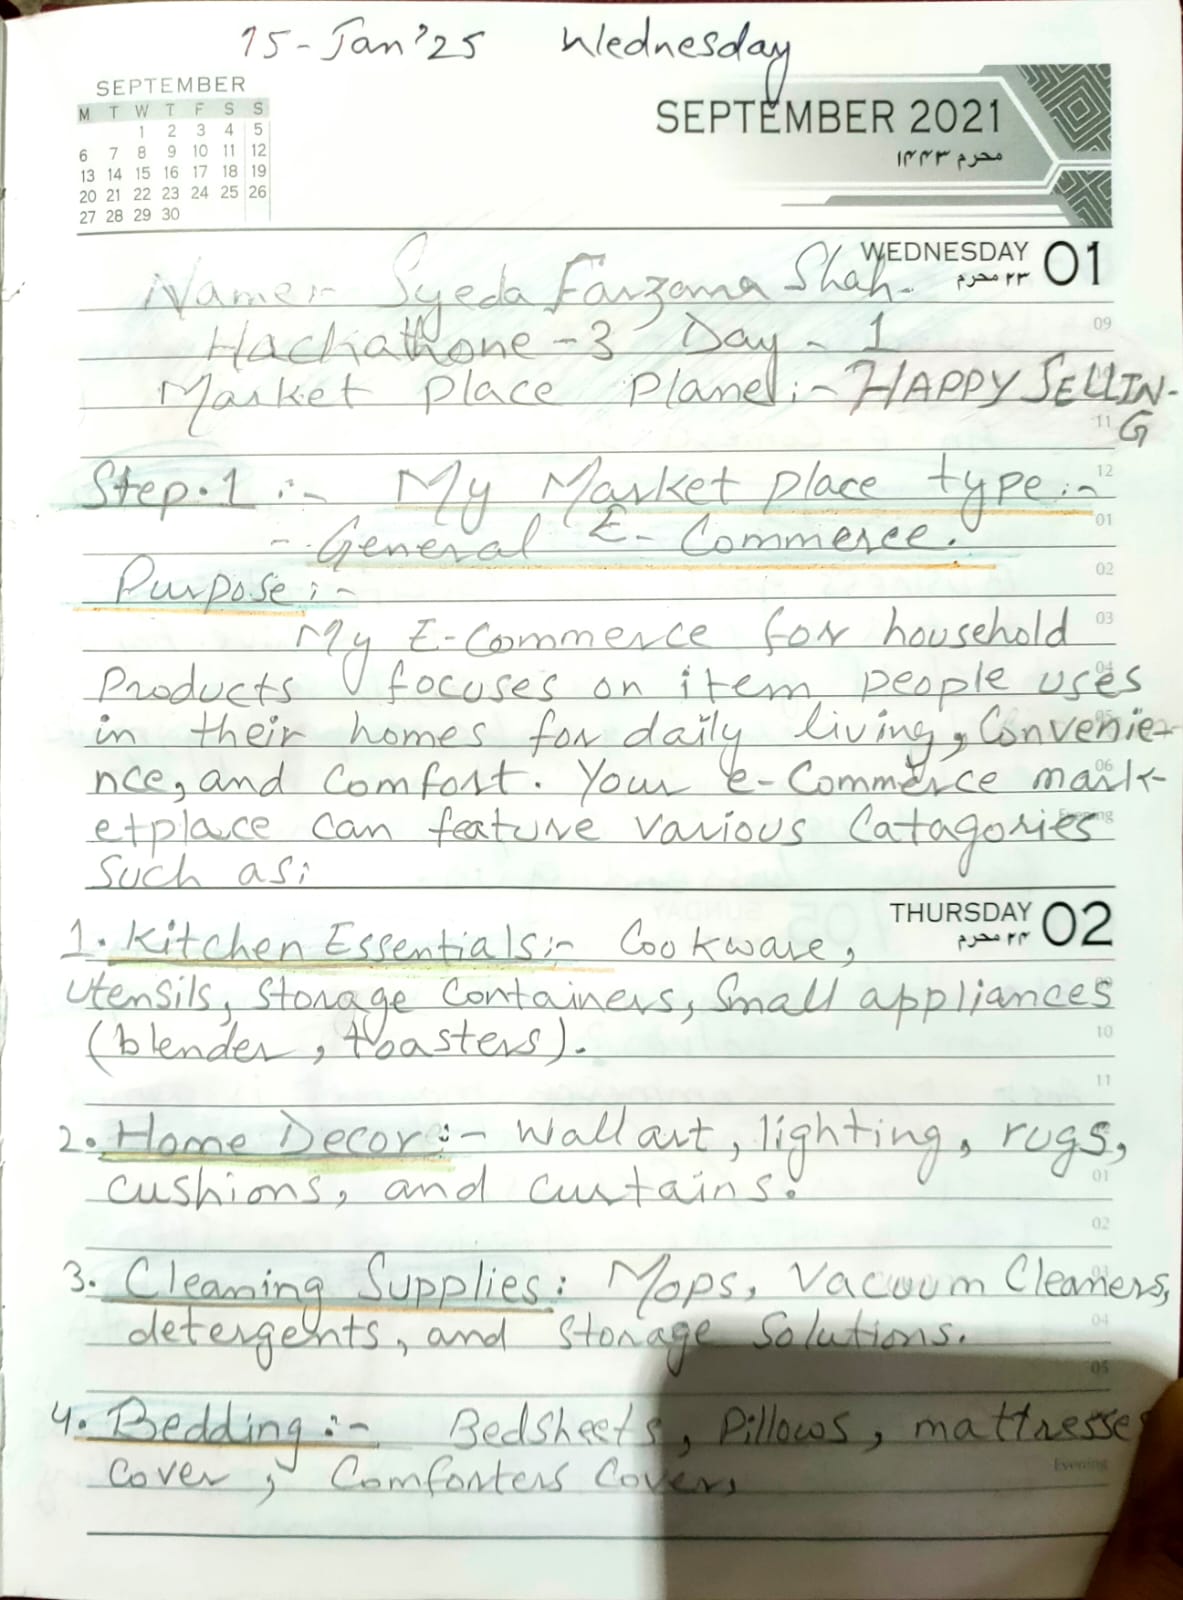 15-Jan'25 Wednesday
SEPTEMBER
M T W T F S S
1 2 3 4 5
6 7 8 9 10 11 12
13 14 15 16 17 18 19
20 21 22 23 24 25 26
27 28 29 30
SEPTEMBER 2021
محرم ۱۴۴۳
WEDNESDAY 01
۲۳ محرم
Name:- Syeda Farzana Shah.
Hachathone-3 Day-1
Market Place Planed:- HAPPY SELLIN-
G
Step.1 :- My Market place type:-
- General E-Commerce.
Purpose:-
My E-Commerce for household
Products focuses on item people uses
in their homes for daily living, Convenie-
nce, and Comfort. Your e-Commerce mark-
etplace can feature various Catagories
Such as:
THURSDAY 02
۲۴ محرم
1. Kitchen Essentials:- Cookware,
Utensils, Storage Containers, Small appliances
(blender, toasters).
2. Home Decor:- Wall art, lighting, rugs,
cushions, and curtains.
3. Cleaning Supplies: Mops, Vacuum Cleaners,
detergents, and Storage Solutions.
4. Bedding:- Bedsheets, Pillows, mattresse
Cover, Comforters Covers
09
11
12
01
02
03
04
05
06
Evening
09
10
11
01
02
03
04
05
Evening